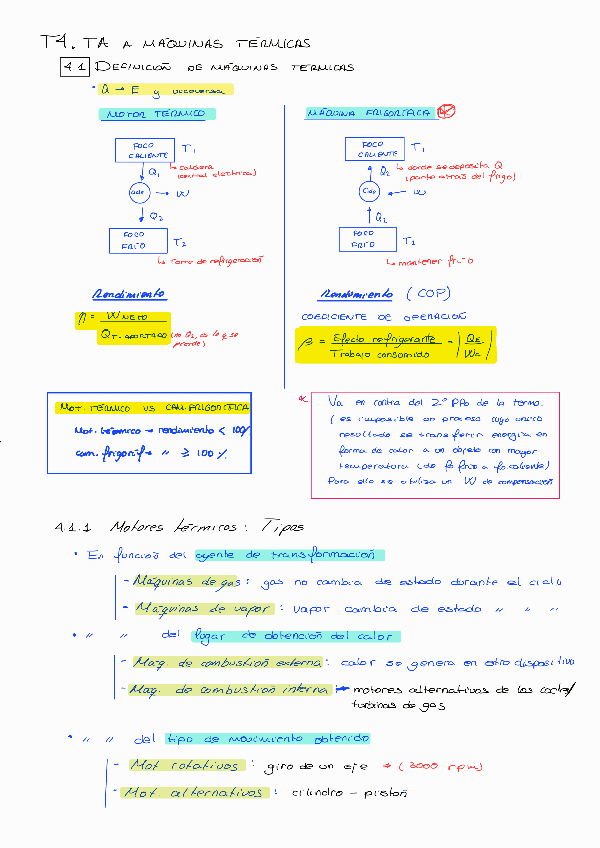 T4. TA A MÁQUINAS TÉRMICAS
4.1 DEFINICIÓN DE MÁQUINAS TÉRMICAS
• Q → E y viceversa
MOTOR TÉRMICO
FOCO
CALIENTE
T1
Q1
↳ caldera
(central eléctrica)
Ciclo
→ W
Q2
FOCO
FRÍO
T2
↳ Torre de refrigeración
Rendimiento
η = W NETO
Q T. APORTADO (no Q2, es lo que se
pierde)
MÁQUINA FRIGORÍFICA *
FOCO
CALIENTE
T1
Q2
↳ donde se deposita Q
(parte atrás del frigo)
Ciclo
← W
Q2
FOCO
FRÍO
T2
↳ mantener frío
Rendimiento (COP)
COEFICIENTE DE OPERACIÓN
β = Efecto refrigerante / Trabajo consumido = |QE / Wc|
MOT. TÉRMICO VS CAM. FRIGORÍFICA
Mot. térmico → rendimiento < 100%
cam. frigoríf → " ≥ 100%
* Va en contra del 2º PPo de la termo.
(es imposible un proceso cuyo único
resultado se transferir energía en
forma de calor a un objeto con mayor
temperatura (de fo.frío a fo.caliente)
Para ello se utiliza un W de compensación
4.1.1 Motores térmicos: Tipos
• En función del agente de transformación
- Máquinas de gas: gas no cambia de estado durante el ciclo
- Máquinas de vapor: vapor cambia de estado " " "
• " " del lugar de obtención del calor
- Maq. de combustión externa: calor se genera en otro dispositivo
- Maq. de combustión interna → motores alternativos de los coches/
turbinas de gas
• " " del tipo de movimiento obtenido
- Mot rotativos: giro de un eje → (3000 rpm)
- Mot. alternativos: cilindro - pistón